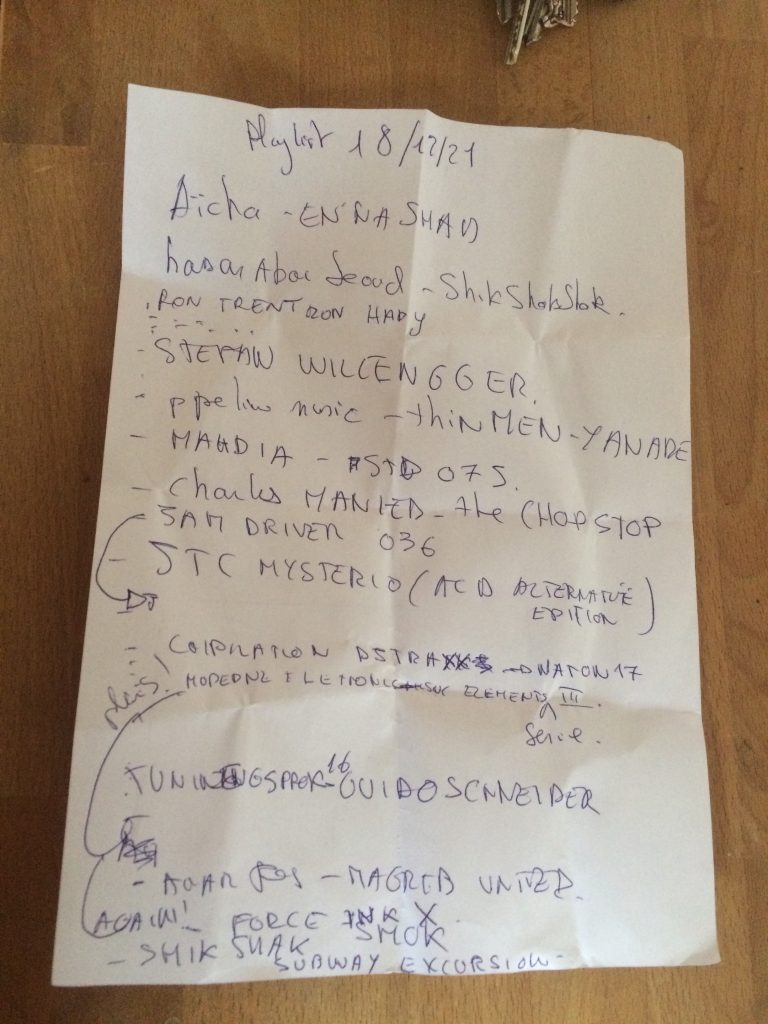 Playlist 18/12/21
Aïcha - EN'NASHAD
hasan Abou Seoud - ShikShakShok.
RON TRENT RON HADY
- STEFAN WILLENGGER.
- pipeline music - thin MEN - YANADE
- MAHDIA - STD 075.
- Charles MANIER - the CHOP STOP
SAM DRIVER 036
- STC MYSTERIO (ACID ALTERNATIVE EDITION)
DJ
COIPILATION DSTRA - DNATON 17
MODERNE ELETRONIC ELEMENTS III.
plus!
Serie.
TUNINGSPORK 16 GUIDOSCHNEIDER
- AGAR AGAR - MAGREB UNITED.
AGAIN! FORCE INK X
- SHIK SHAK SHOK
SUBWAY EXCURSION -